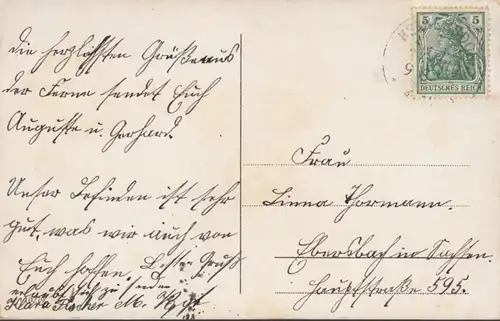 die herzlichsten Grüße aus
der Ferne sendet Euch
Auguste u. Gerhard.
Unser Befinden ist sehr
gut, was wir auch von
Euch hoffen. Besten Gruß
erlaubt sich zu senden
Klara Fischer M.
5 5
DEUTSCHES REICH
Frau
Linna Thormann.
Ebersbach in Sachsen.
Hauptstraße 595.